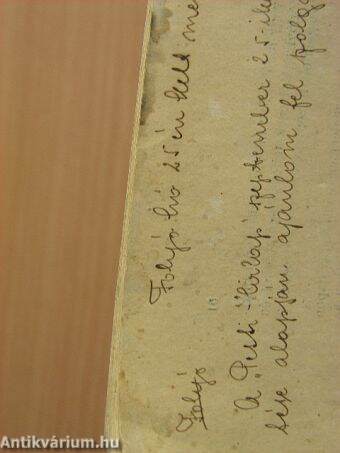 Folyó hó 25 én kelt me
Folyó
A „Pesti-Hirlap" szeptember 25-iki
tése alapján ajánlom fel szolgá
Antikvárium.hu